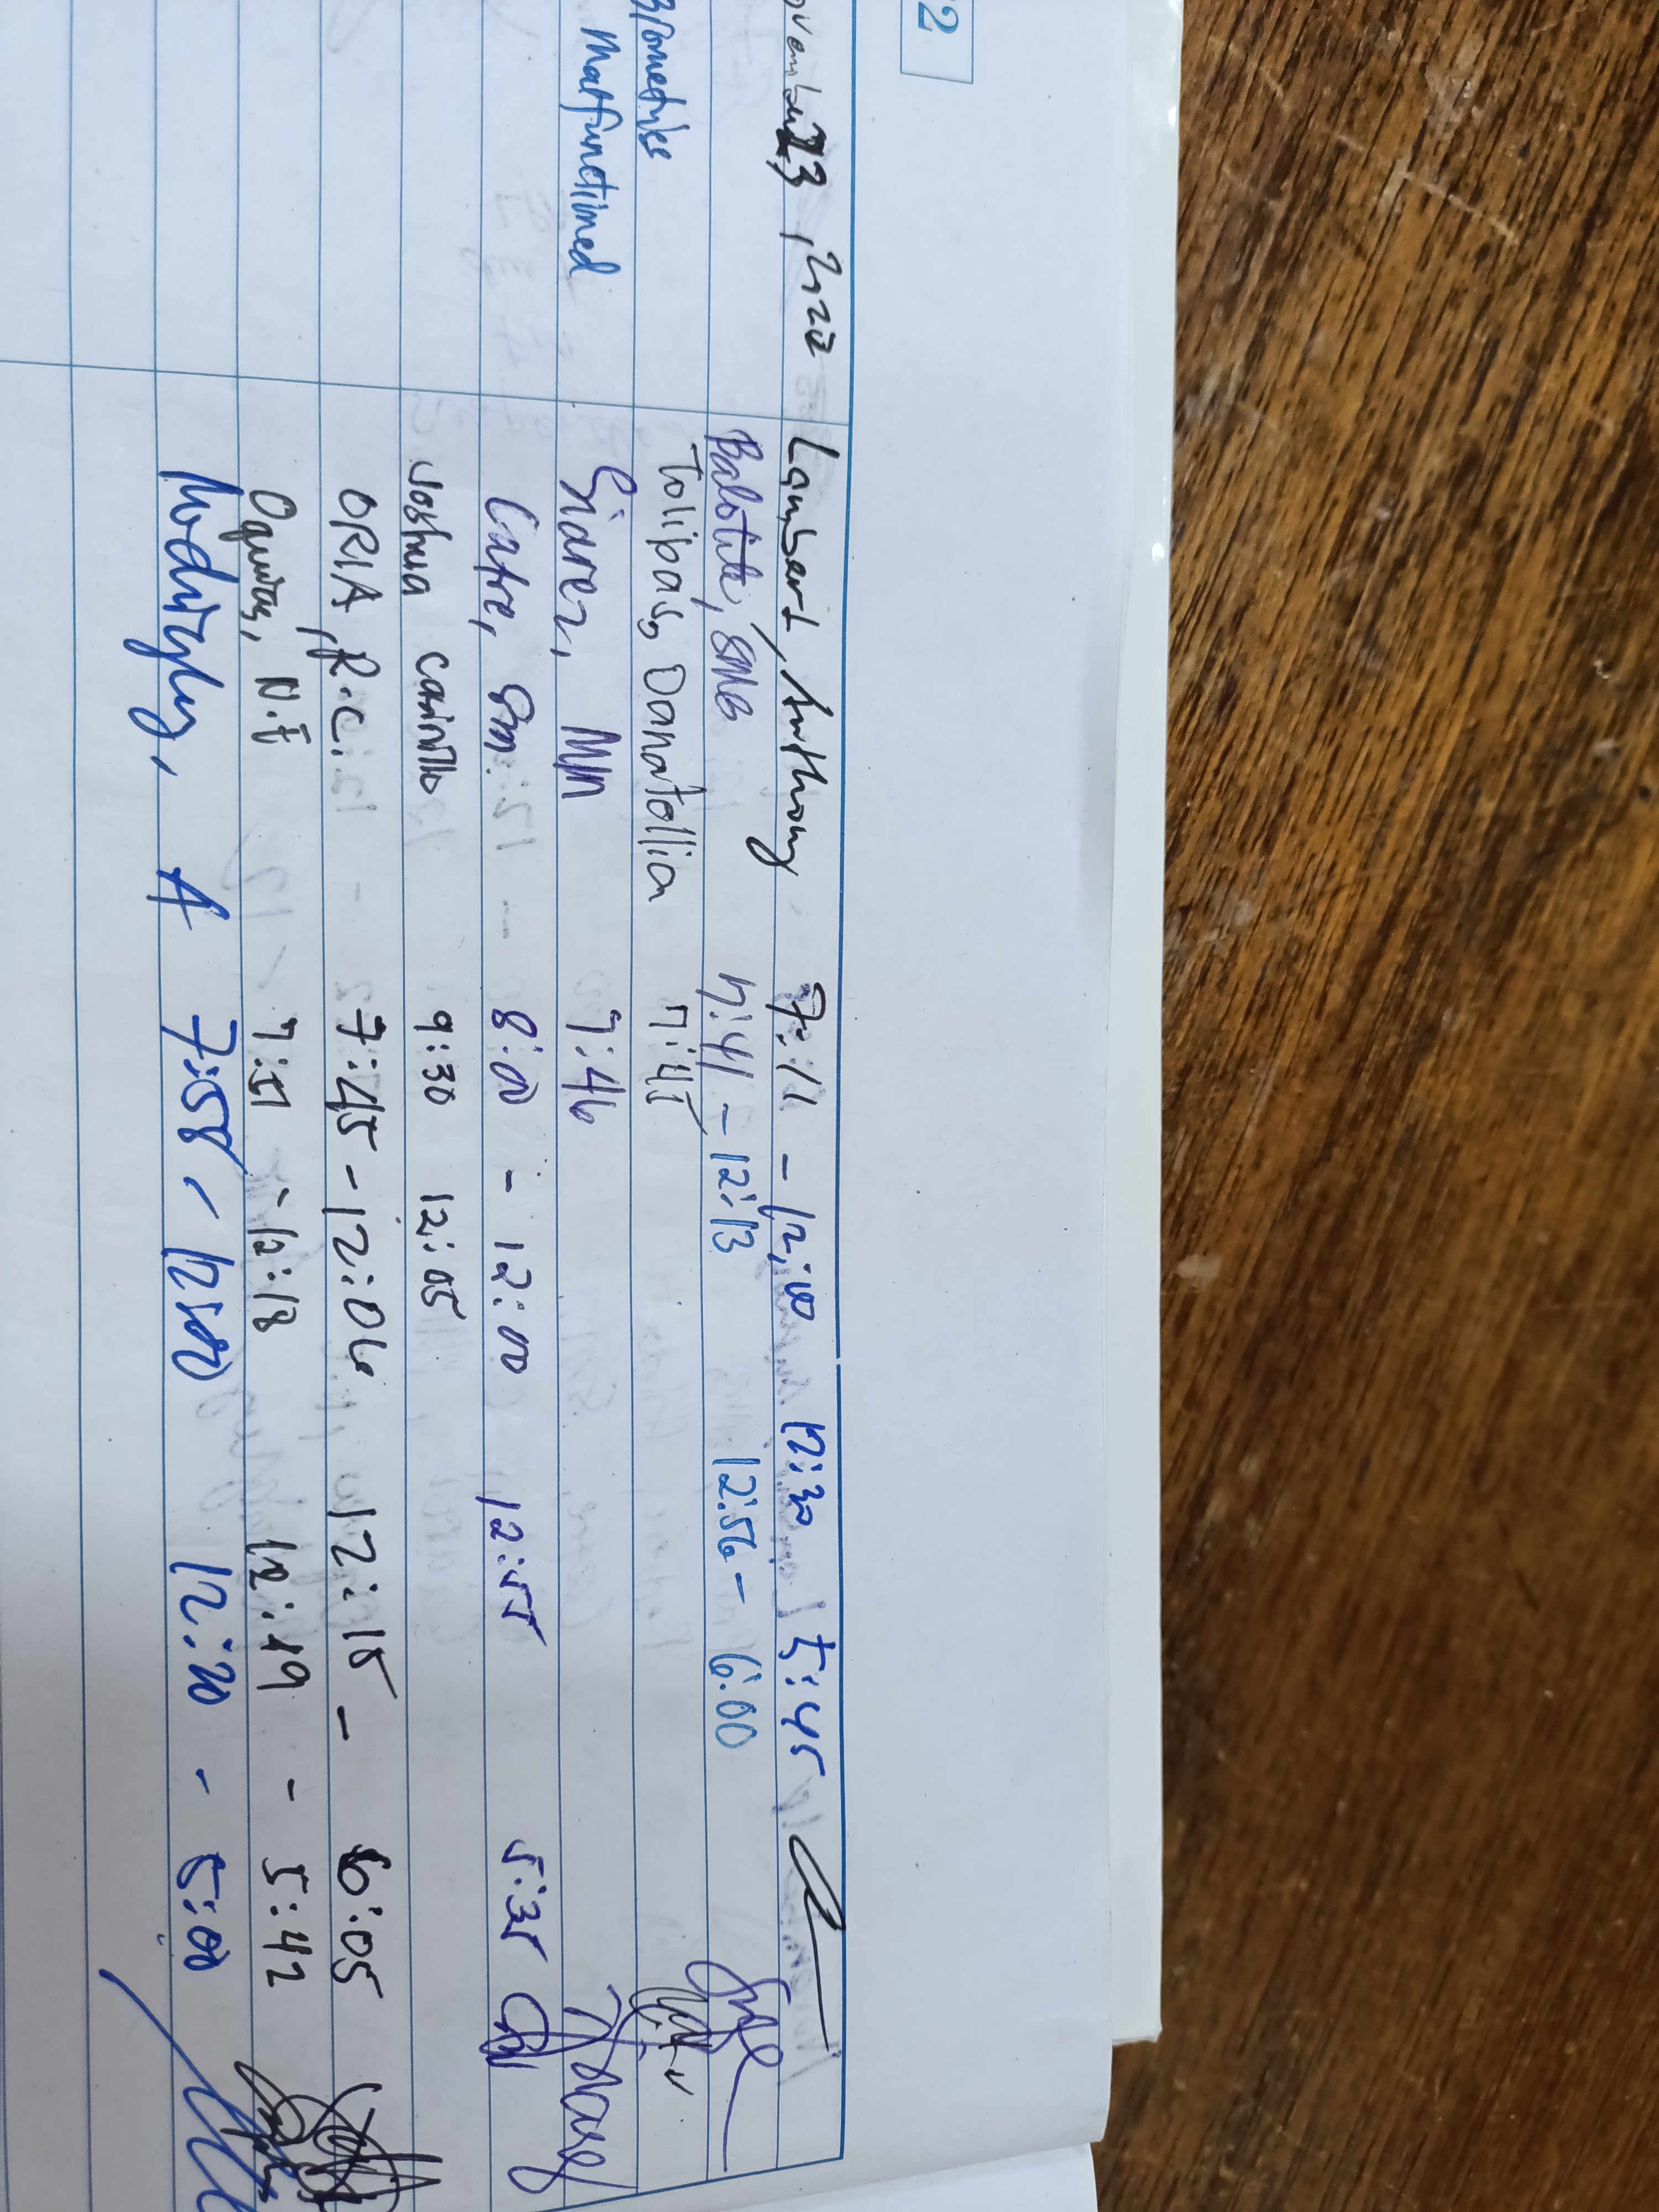 2
November 23, 2022
Biometrics
Malfunctioned
Lambert, Anthony 7:11 - 12:00 12:30 5:45
Balotite, SMB 7:41 - 12:13 12:56 - 6:00
Tolibas, Danatellia 7:45
Siarez, MM 7:46
Catre, Gm. 8:00 - 12:00 12:55 5:35
Joshua 9:30 12:05
ORIA, R.C. 7:45 - 12:04 12:15 - 6:05
N.E 7:51 - 12:18 12:19 - 5:42
A 7:58 - 12:00 12:20 - 5:00